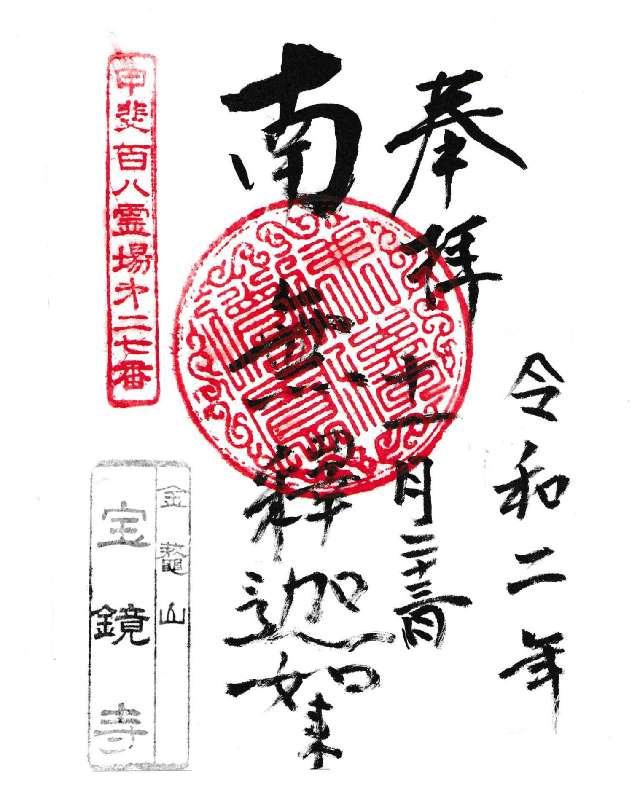 令和二年
奉拝
十一月二十三日
南無釋迦如来
甲斐百八霊場㐧二七番
金鼇山
宝鏡寺